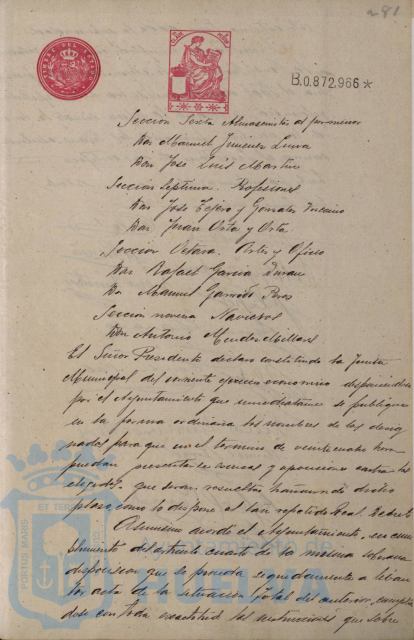 281
TIMBRE DEL ESTADO
B.0.872.966*
Sección Sexta Almacenistas al por menor
Don Manuel Jimenez
Don José Luis Martin
Sección Septima. Profesiones
Don José Tejero y Gonzalez Vizcaino
Don Juan Orta y Orta
Sección Octava. Artes y Oficios
Don Rafael Garcia Duran
Don Manuel Garrido Peros
Sección novena Navieros
Don Antonio Mendez
El Señor Presidente declaró constituida la Junta
Municipal del corriente ejercicio economico disponiendose
por el Ayuntamiento que inmediatamente se publiquen
en la forma ordinaria los nombres de los desig-
nados para que en el termino de veinticuatro horas
puedan presentarse excusas y oposiciones contra los
elegidos que seran resueltas de dicho
plazo, como lo dispone el tan repetido Real Decreto
Asimismo acordó el Ayuntamiento, en cum-
plimiento del articulo cuarto de la misma soberana
disposicion que se proceda seguidamente a levan-
tar acta de la situación total del anterior, cumplien-
dose con toda exactitud las instrucciones que sobre
PORTUS MARIS ET TERRAE
Ayuntamiento de
HUELVA